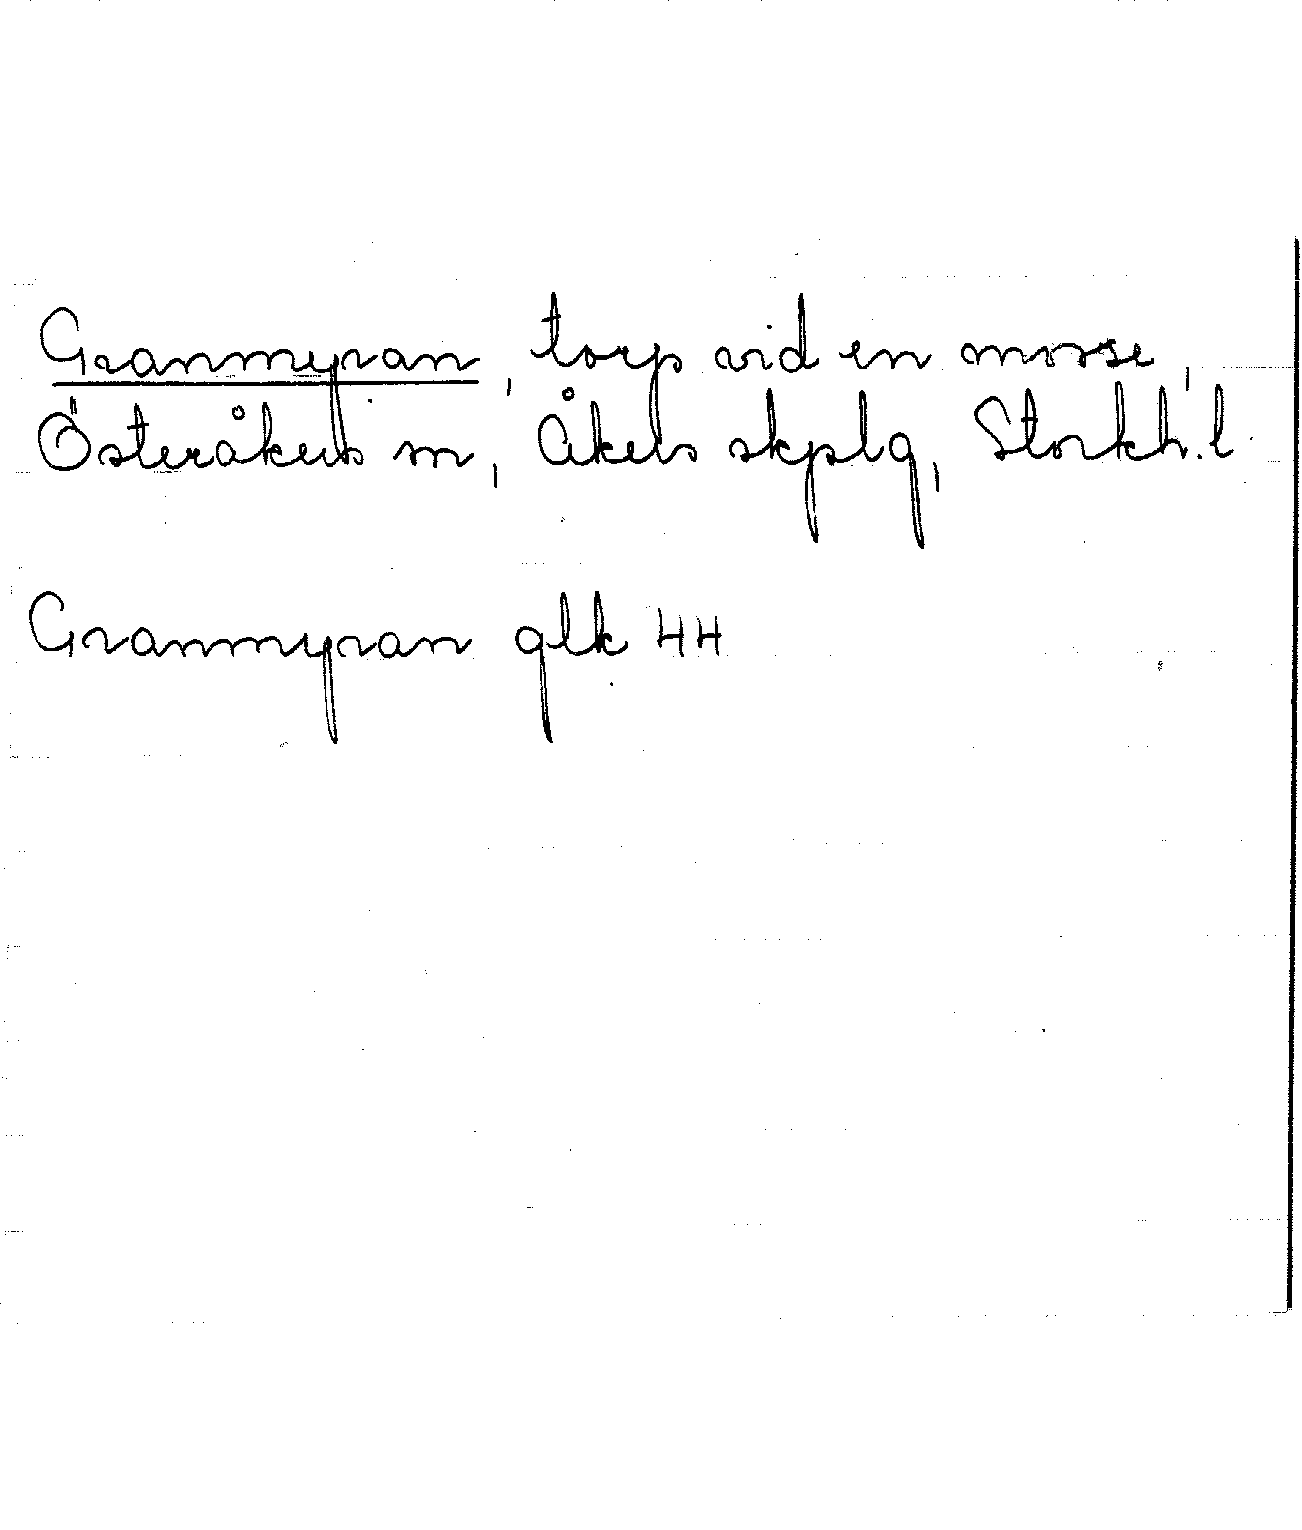 Granmyran, torp vid en mosse,
Österåkers sn, Åkers skplg, Stockh.l.
Granmyran glk 44